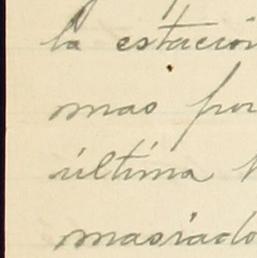 la estación
mas por
última
masiado